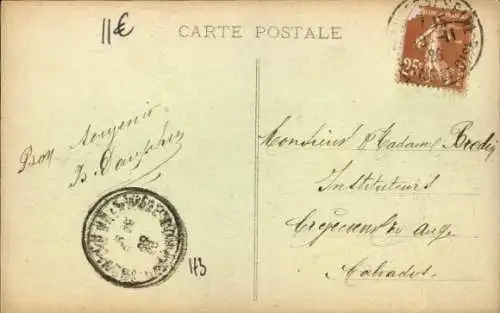 11€
CARTE POSTALE
25
Bon Souvenir
Monsieur & Madame Bredin
Instituteurs
Crèvecoeur en Auge
Calvados
H3